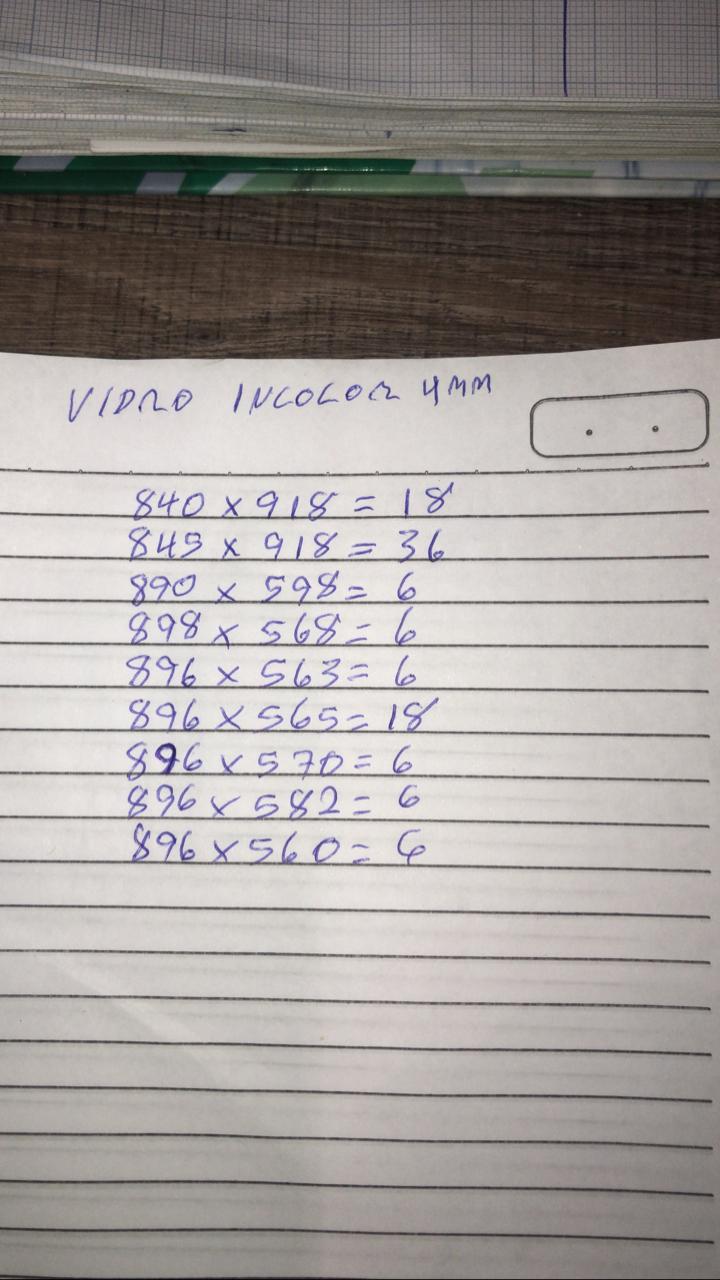 VIDRO INCOLOR 4MM
840 x 918 = 18
845 x 918 = 36
890 x 598 = 6
898 x 568 = 6
896 x 563 = 6
896 x 565 = 18
896 x 570 = 6
896 x 582 = 6
896 x 560 = 6